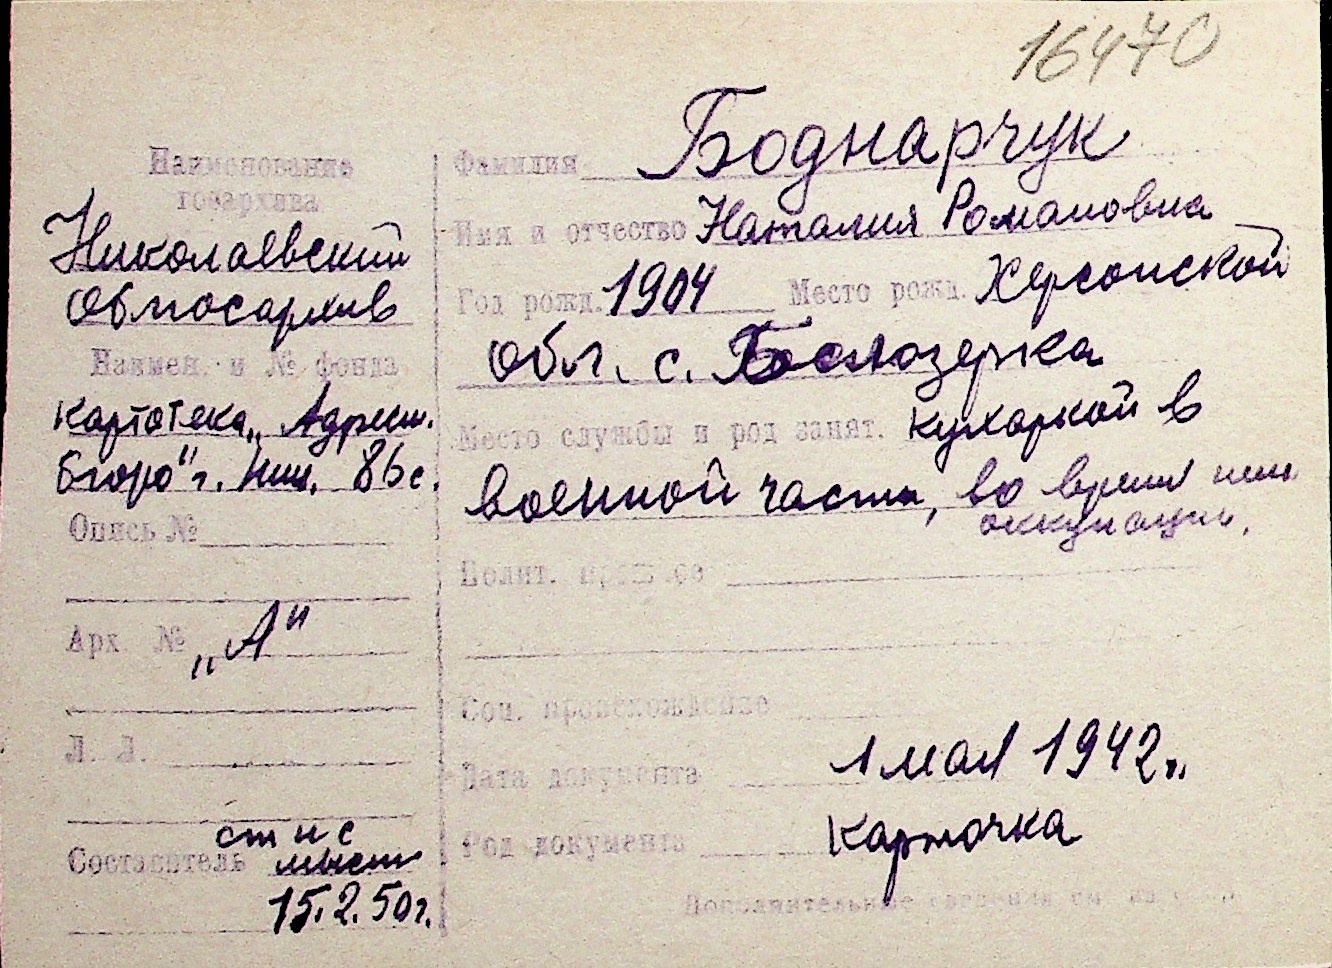 16470
Наименование
госархива
Николаевский
Облгосархив
Наимен. и № фонда
Картотека „Адресн.
бюро" г. Ник. 86 с.
Опись №
Арх №
„А"
Л. Л.
Составитель
15.2.50 г.
Фамилия Боднарчук
Имя и отчество Наталия Романовна
Год рожд. 1904 Место рожд. Херсонской
обл. с. Белозерка
Место службы и род занят. кухаркой в
военной части, во время нем.
оккупации.
Полит. прошлое
Соц. происхождение
Дата документа 1 мая 1942 г.
Род документа Карточка
Дополнительные сведения см. на